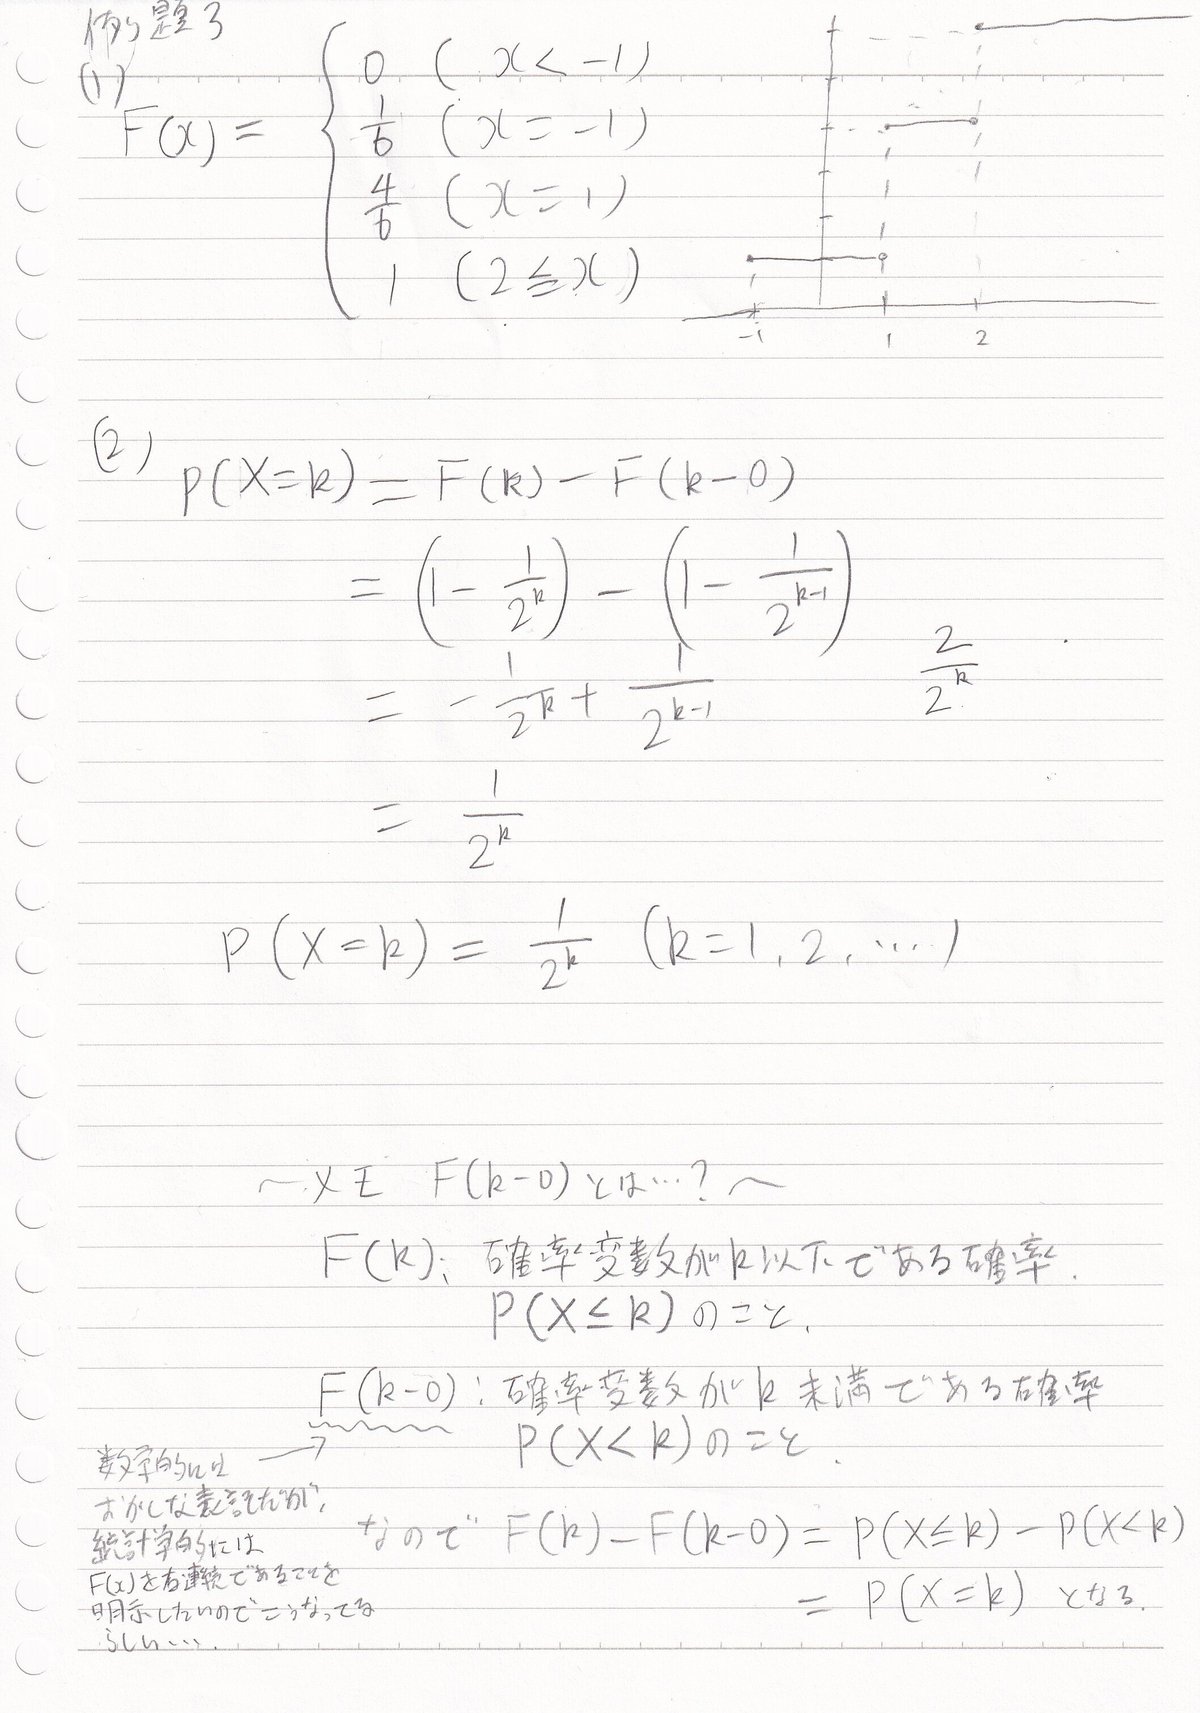 例題3
(1)
F(x) = { 0 ( x < -1)
1/6 ( x = -1)
4/6 ( x = 1)
1 ( 2 ≦ x )
-1 1 2
(2)
P(X=k) = F(k) - F(k-0)
= (1 - 1/2^k) - (1 - 1/2^{k-1})
= - 1/2^k + 1/2^{k-1}
2/2^k
= 1/2^k
P(X=k) = 1/2^k (k=1, 2, ....)
~メモ F(k-0)とは…?~
F(k): 確率変数がk以下である確率.
P(X≤k)のこと.
F(k-0): 確率変数がk未満である確率
P(X<k)のこと.
数学的には
おかしな表記だが、
統計学的には
F(x)を右連続であることを
明示したいのでこうなってる
らしい….
なので F(k)-F(k-0) = P(X≤k) - P(X<k)
= P(X=k) となる.